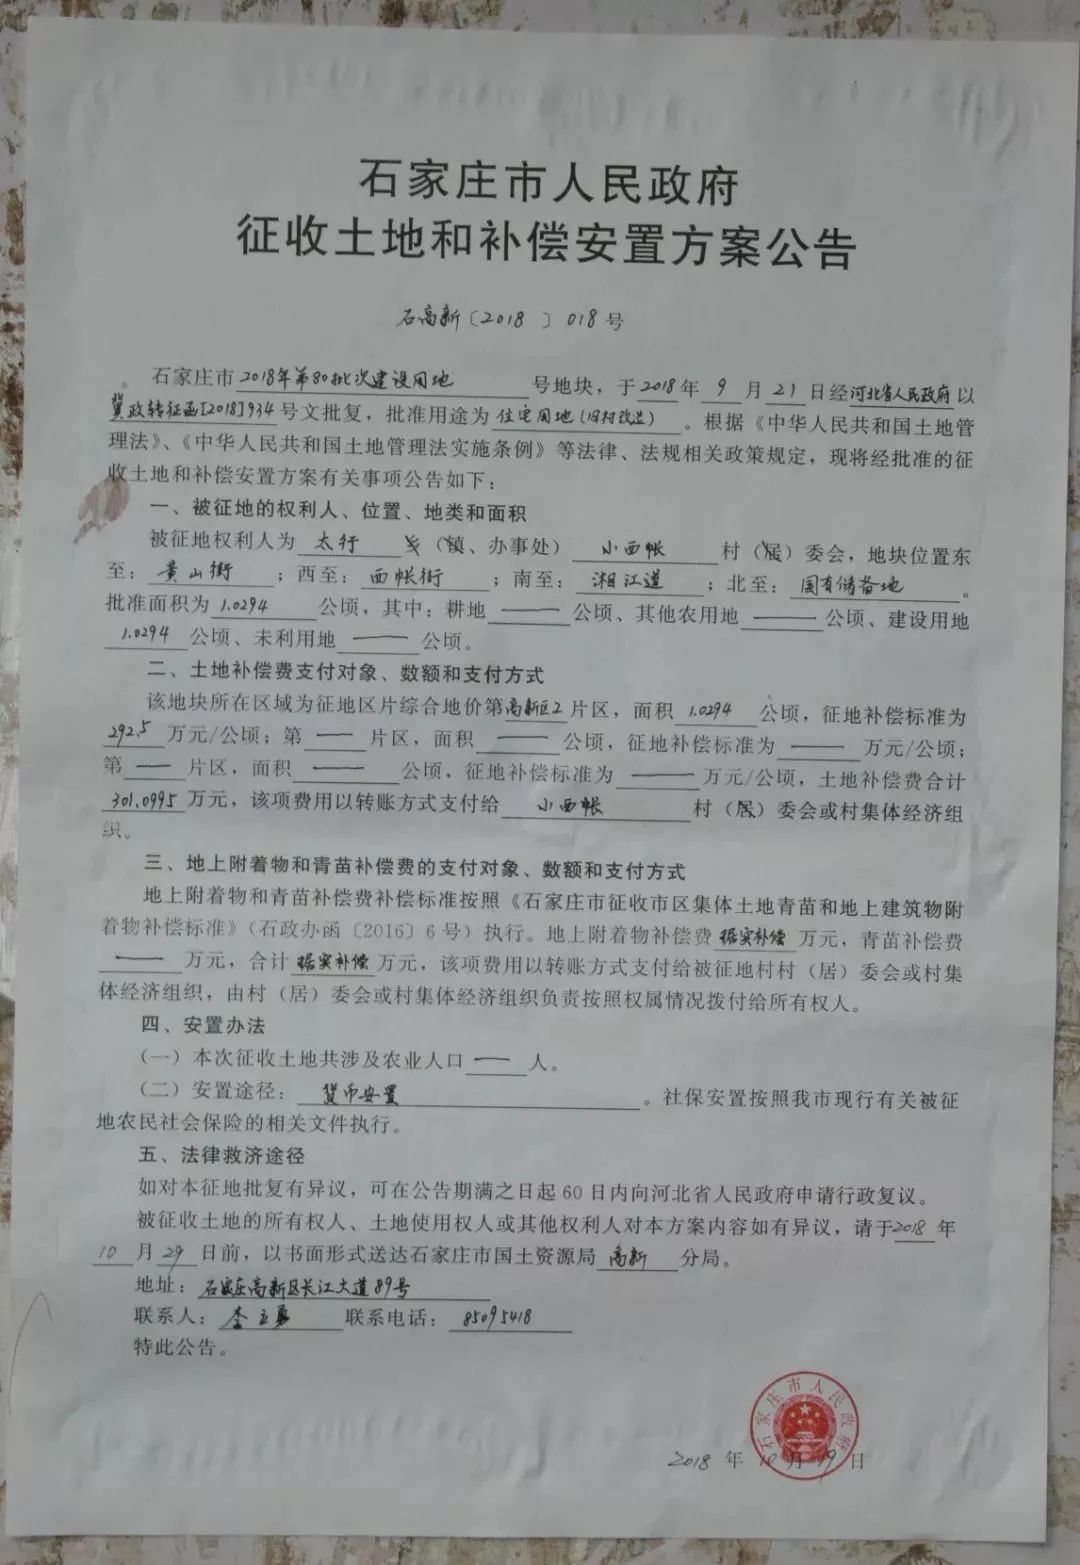 石家庄市人民政府
征收土地和补偿安置方案公告
石高新〔2018〕018号
石家庄市2018年第80批次建设用地号地块，于2018年9月21日经河北省人民政府以
冀政转征函[2018]934号文批复，批准用途为住宅用地(旧村改造)。根据《中华人民共和国土地管
理法》、《中华人民共和国土地管理法实施条例》等法律、法规相关政策规定，现将经批准的征
收土地和补偿安置方案有关事项公告如下：
一、被征地的权利人、位置、地类和面积
被征地权利人为太行（镇、办事处）小西帐村（居）委会，地块位置东
至：黄山街；西至：西帐街；南至：湘江道；北至：国有储备地。
批准面积为1.0294公顷，其中：耕地——公顷、其他农用地——公顷、建设用地
1.0294公顷、未利用地——公顷。
二、土地补偿费支付对象、数额和支付方式
该地块所在区域为征地区片综合地价第高新区2片区，面积1.0294公顷，征地补偿标准为
292.5万元/公顷；第——片区，面积——公顷，征地补偿标准为——万元/公顷；
第——片区，面积——公顷，征地补偿标准为——万元/公顷，土地补偿费合计
301.0995万元，该项费用以转账方式支付给小西帐村（居）委会或村集体经济组
织。
三、地上附着物和青苗补偿费的支付对象、数额和支付方式
地上附着物和青苗补偿费补偿标准按照《石家庄市征收市区集体土地青苗和地上建筑物附
着物补偿标准》（石政办函〔2016〕6号）执行。地上附着物补偿费据实补偿万元，青苗补偿费
——万元，合计据实补偿万元，该项费用以转账方式支付给被征地村村（居）委会或村集
体经济组织，由村（居）委会或村集体经济组织负责按照权属情况拨付给所有权人。
四、安置办法
（一）本次征收土地共涉及农业人口——人。
（二）安置途径：货币安置。社保安置按照我市现行有关被征
地农民社会保险的相关文件执行。
五、法律救济途径
如对本征地批复有异议，可在公告期满之日起60日内向河北省人民政府申请行政复议。
被征收土地的所有权人、土地使用权人或其他权利人对本方案内容如有异议，请于2018年
10月29日前，以书面形式送达石家庄市国土资源局高新分局。
地址：石家庄高新区长江大道89号
联系人：李立勇联系电话：85095418
特此公告。
石家庄市人民政府
2018年10月19日